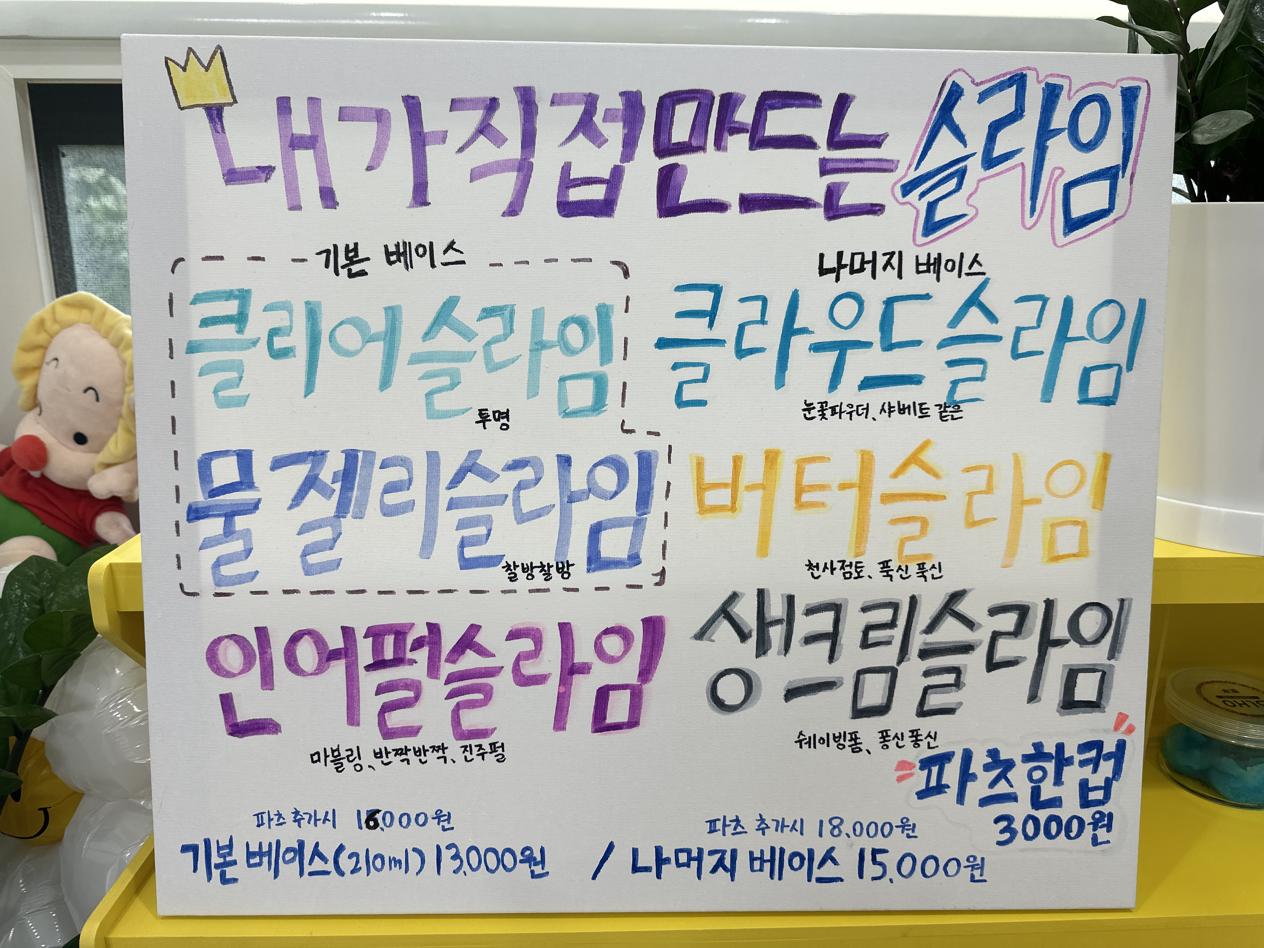 내가 직접 만드는 슬라임
기본 베이스
클리어슬라임
투명
물젤리슬라임
찰방찰방
인어펄슬라임
마블링, 반짝반짝, 진주펄
나머지 베이스
클라우드슬라임
눈꽃파우더, 샤베트 같은
버터슬라임
천사점토, 푹신푹신
생크림슬라임
쉐이빙폼, 퐁신퐁신
파츠한컵
3000원
파츠 추가시 16,000원
파츠 추가시 18,000원
기본 베이스(210ml) 13,000원 / 나머지 베이스 15,000원